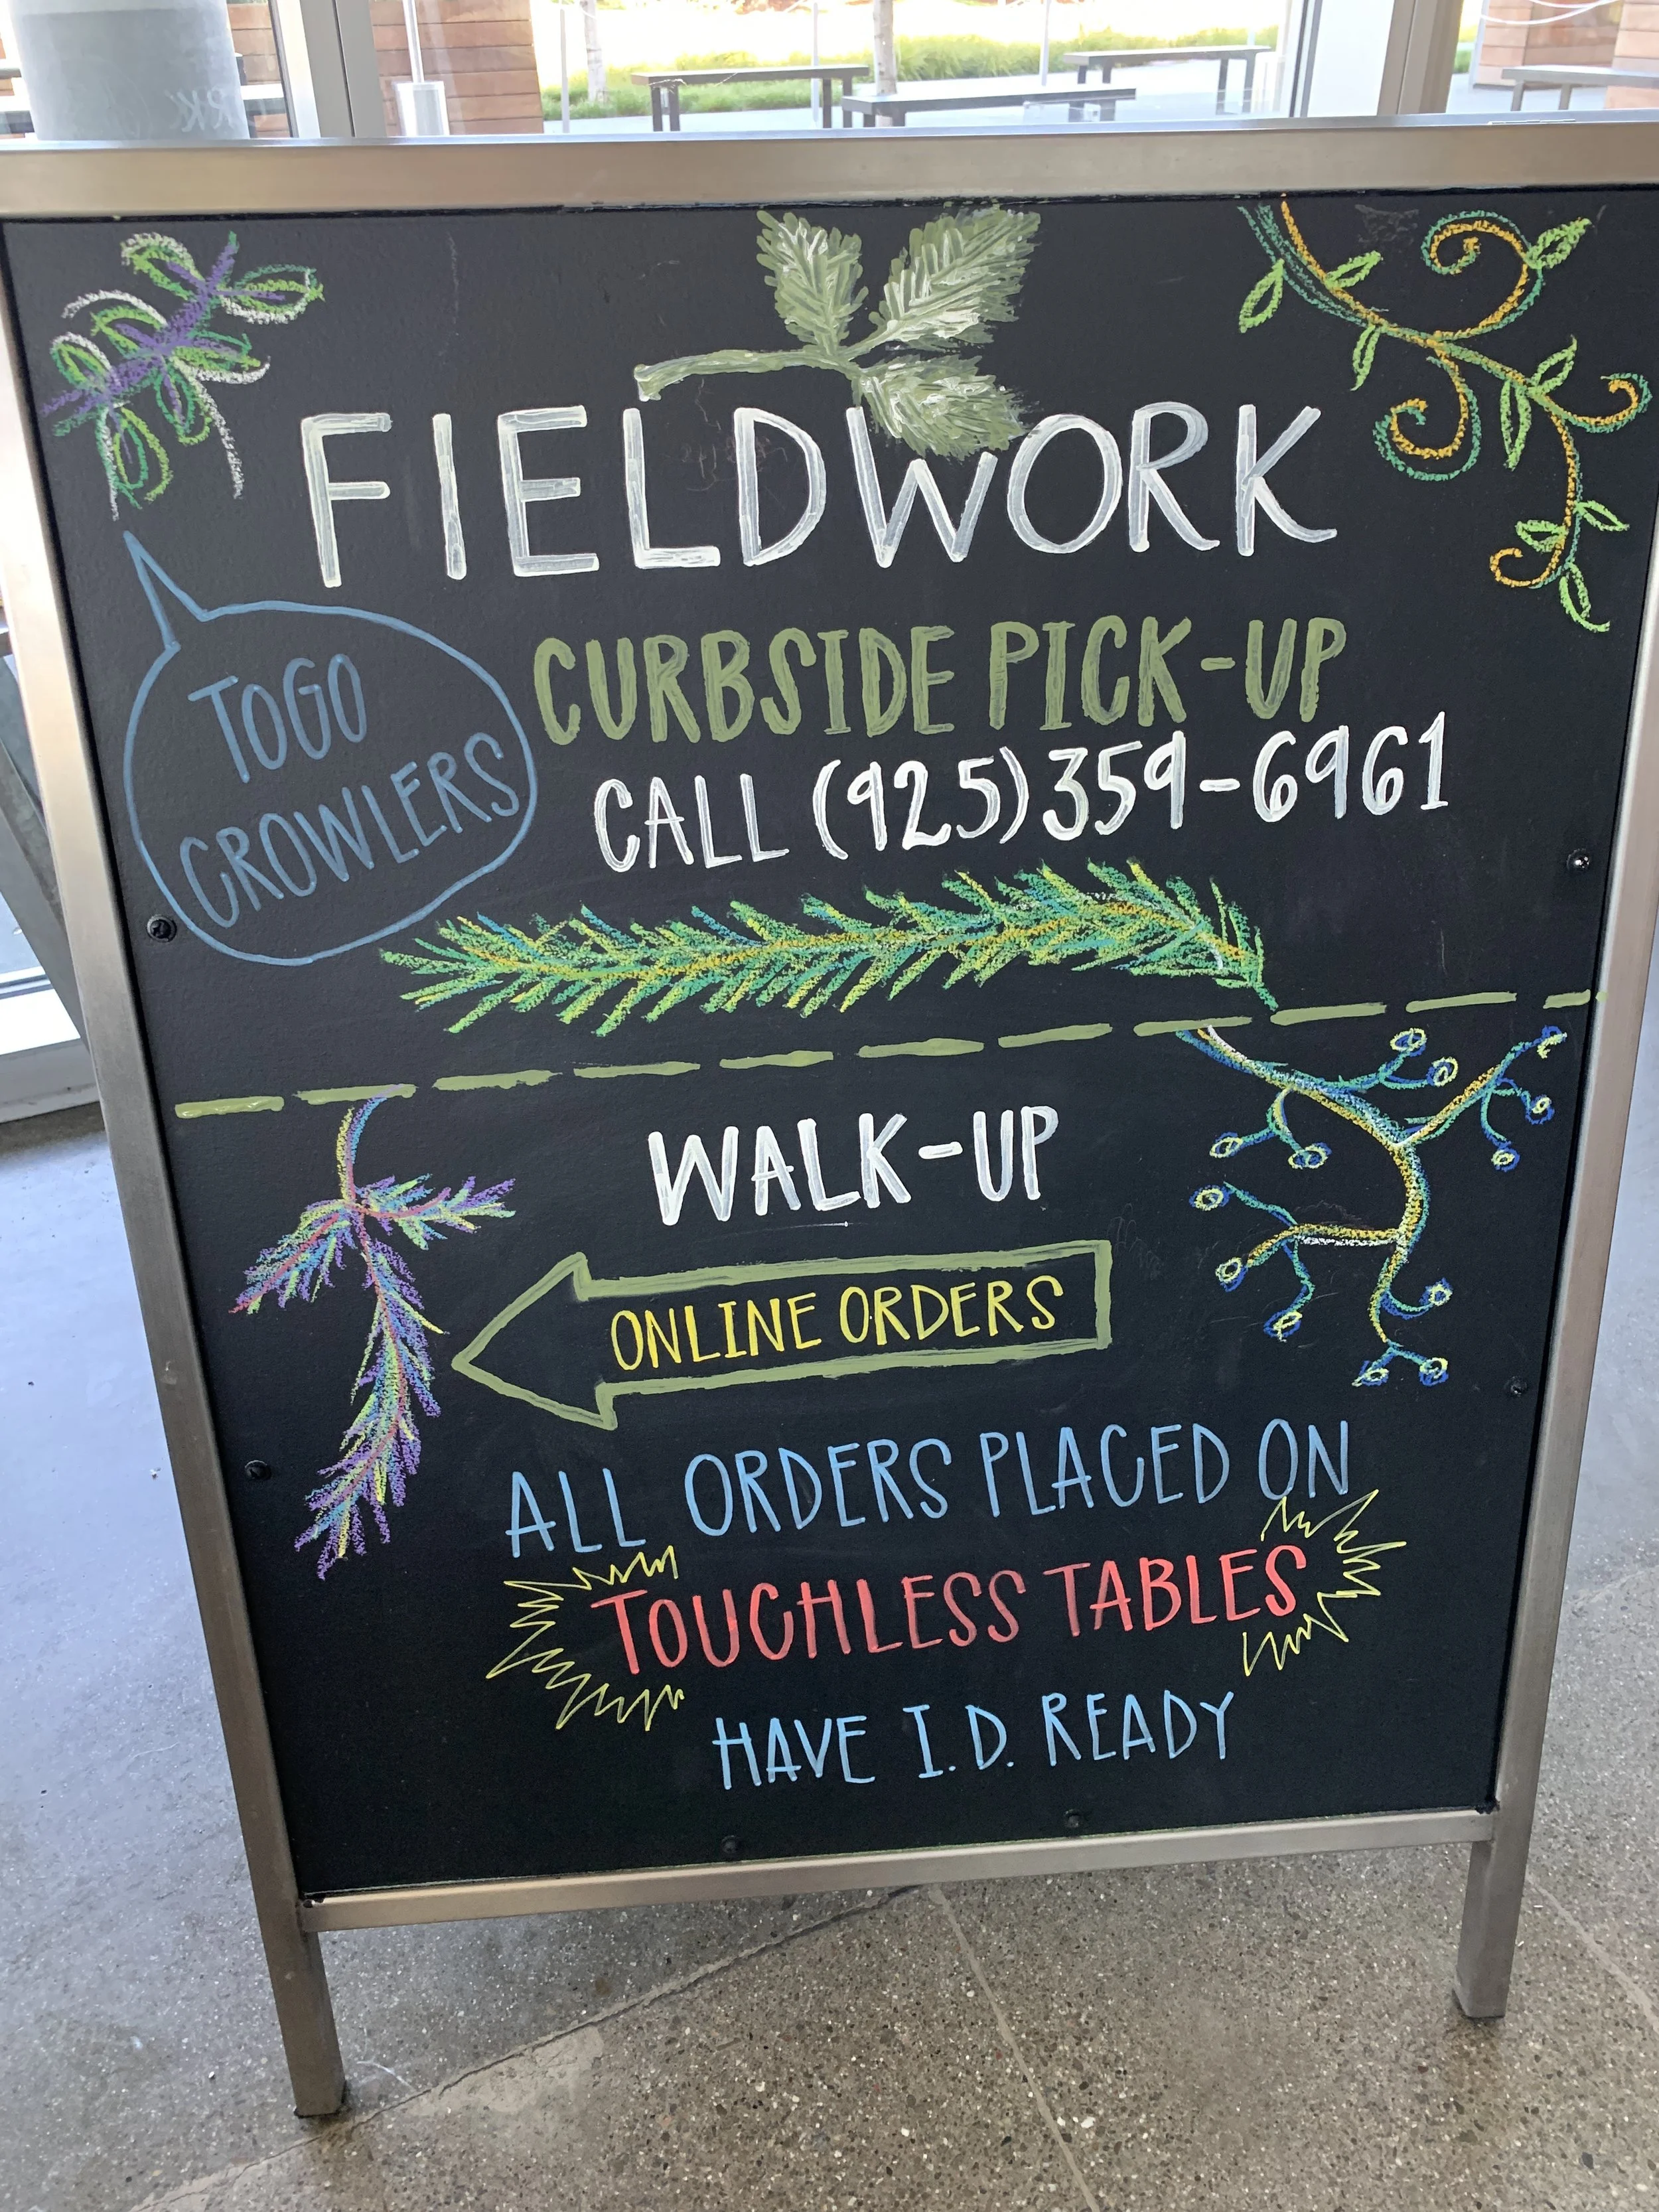 FIELDWORK
TOGO
CROWLERS
CURBSIDE PICK-UP
CALL (925)359-6961
WALK-UP
ONLINE ORDERS
ALL ORDERS PLACED ON
TOUCHLESS TABLES
HAVE I.D. READY